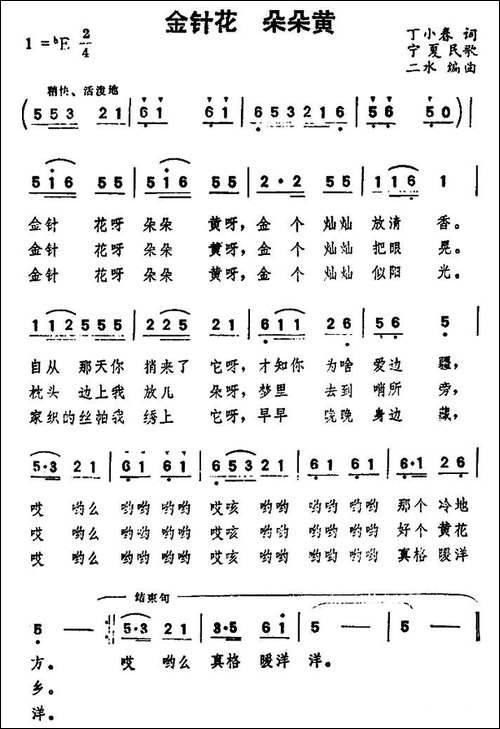 金针花 朵朵黄
1=♭E 2/4
丁小春 词
宁夏民歌
二水 编曲
稍快、活泼地
(553 21 | 61 61 | 653 216 | 56 50) |
516 55 | 516 55 | 2·2 55 | 116 1 |
金针 花呀 朵朵 黄呀，金 个 灿灿 放清 香。
金针 花呀 朵朵 黄呀，金 个 灿灿 把眼 晃。
金针 花呀 朵朵 黄呀，金 个 灿灿 似阳 光。
112 555 | 225 21 | 611 26 | 56 5 |
自从 那天你 捎来了 它呀，才知你 为啥 爱边 疆，
枕头 边上我 放几 朵呀，梦里 去到 哨所 旁，
家织的丝帕我 绣上 它呀，早早 晚晚 身边 藏，
5·3 21 | 61 61 | 653 21 | 61 61 | 6·1 26 |
哎 哟么 哟哟 哟哟 哎咳 哟哟 哟哟 哟哟 那个 冷地
哎 哟么 哟哟 哟哟 哎咳 哟哟 哟哟 哟哟 好个 黄花
哎 哟么 哟哟 哟哟 哎咳 哟哟 哟哟 哟哟 真格 暖洋
结束句
5 — :| 5·3 21 | 3·5 61 | 5 — | 5 — ||
方。 哎 哟么 真格 暖洋 洋。
乡。
洋。